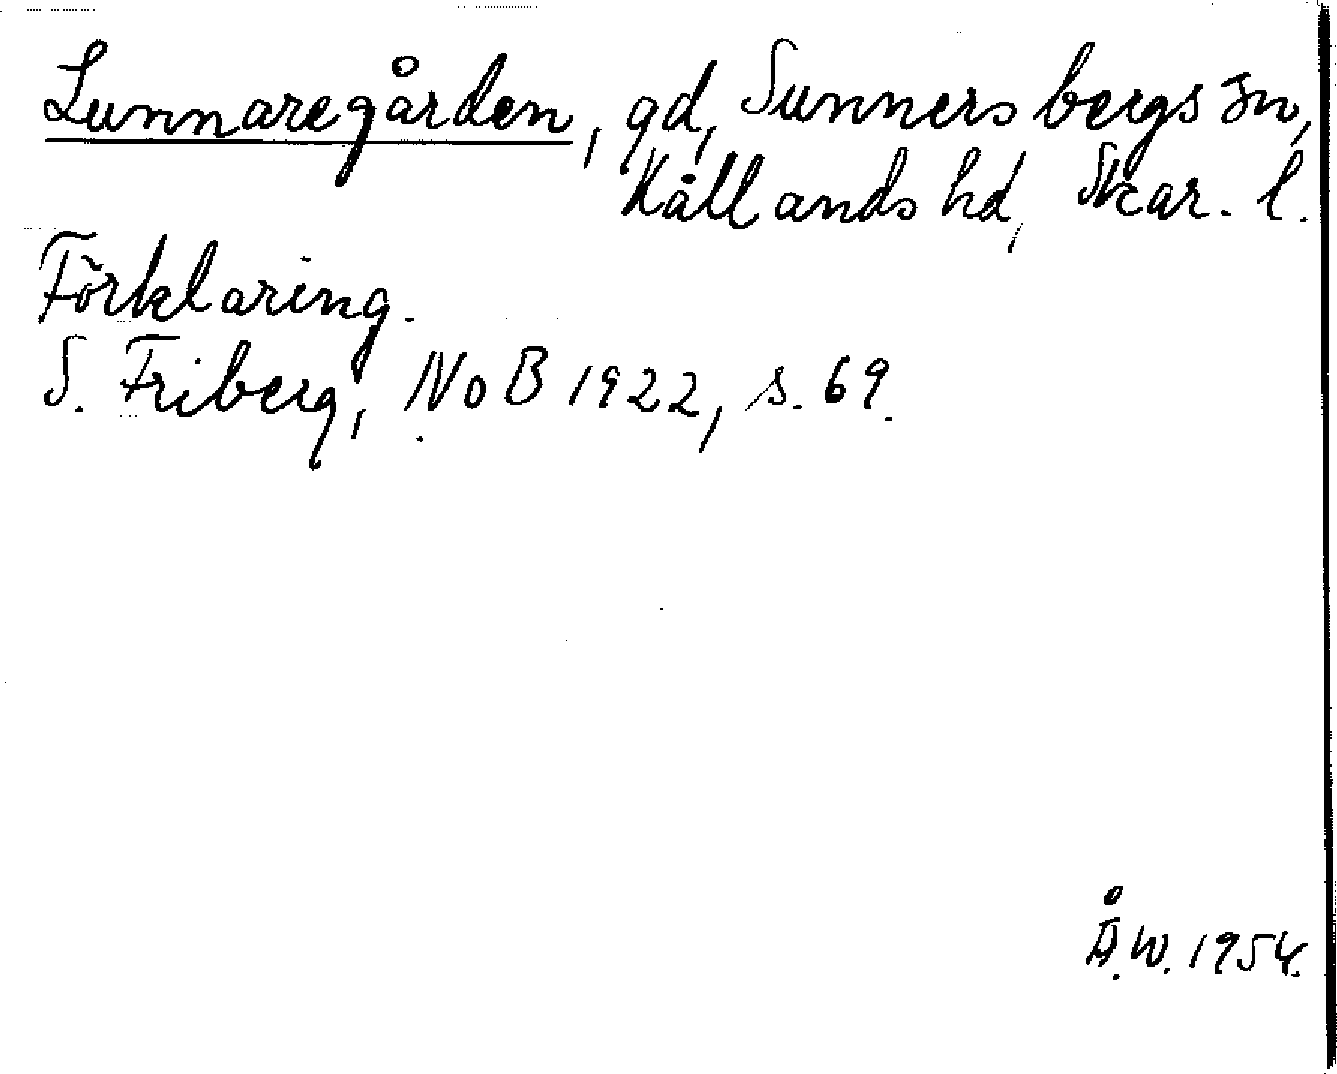 Lunnaregården, gd, Sunnersbergs sn,
Kållands hd, Skar. l.
Förklaring.
S. Friberg, NoB 1922, s. 69.
Å.W. 1954.